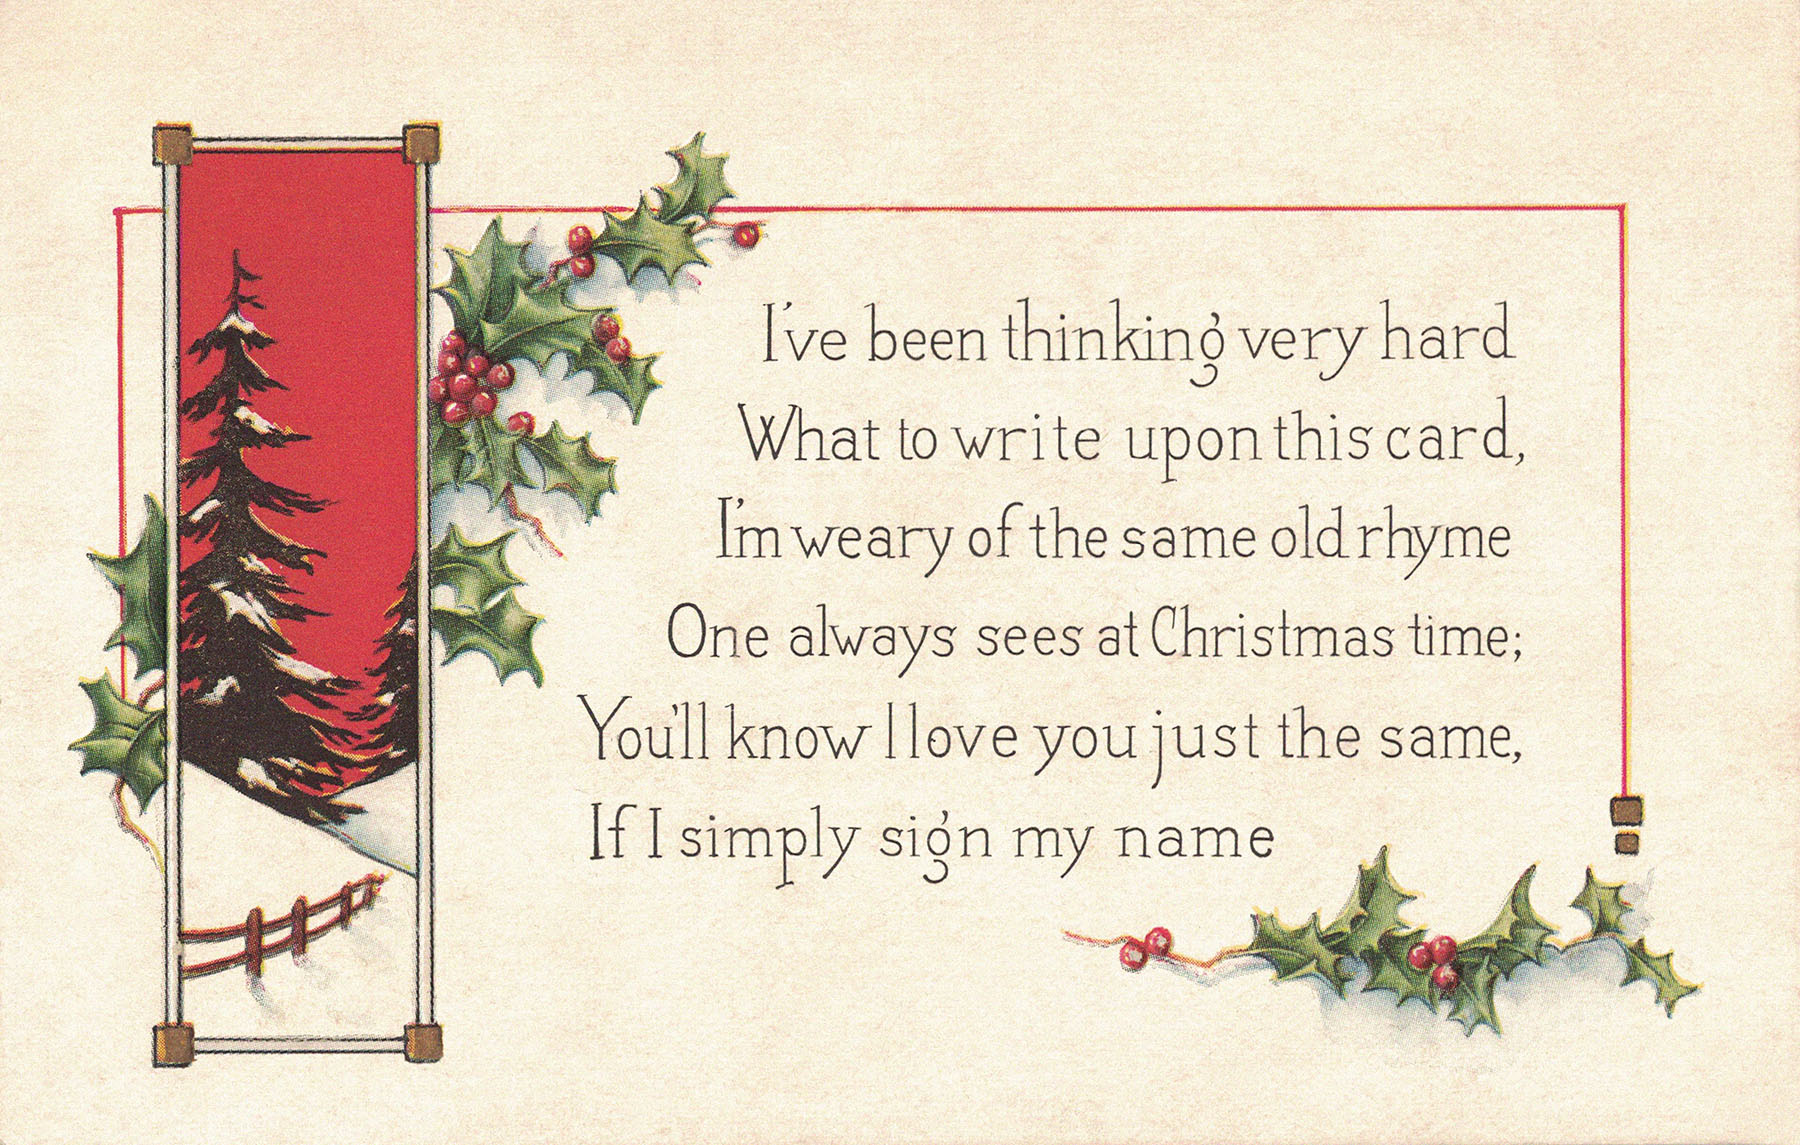 I've been thinking very hard
What to write upon this card,
I'm weary of the same old rhyme
One always sees at Christmas time;
You'll know I love you just the same,
If I simply sign my name